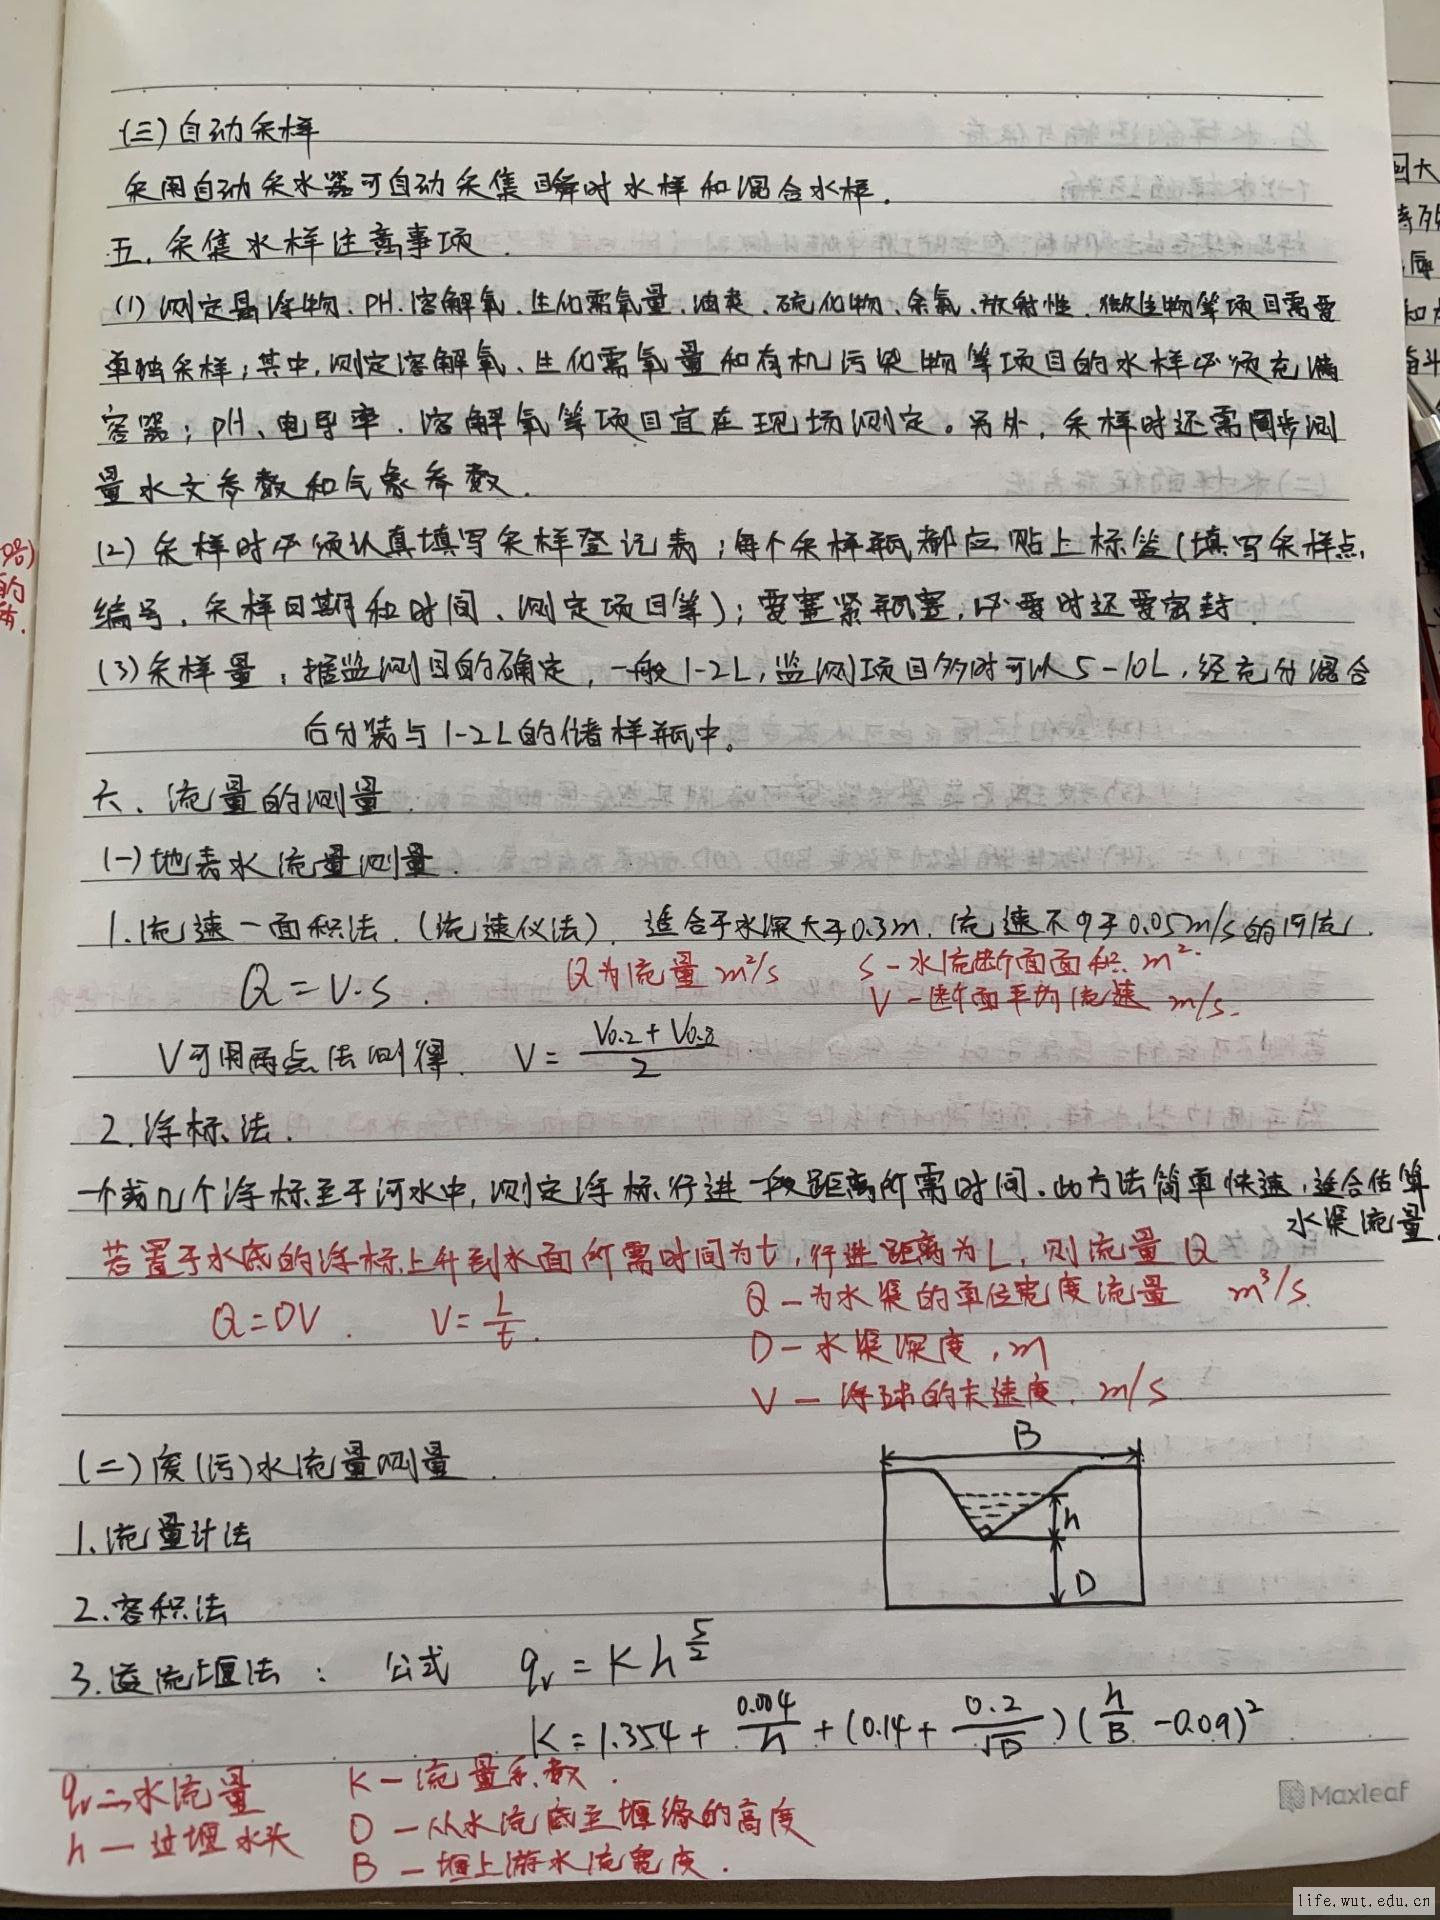 (三)自动采样
采用自动采水器可自动采集瞬时水样和混合水样.
五.采集水样注意事项.
(1)测定悬浮物、PH、溶解氧、生化需氧量、油类、硫化物、余氯、放射性、微生物等项目需要
单独采样;其中,测定溶解氧、生化需氧量和有机污染物等项目的水样必须充满
容器;pH、电导率、溶解氧等项目宜在现场测定。另外,采样时还需同步测
量水文参数和气象参数.
(2)采样时必须认真填写采样登记表;每个采样瓶都应贴上标签(填写采样点,
编号,采样日期和时间、测定项目等);要塞紧瓶塞,必要时还要密封.
(3)采样量:据监测目的确定,一般1-2L,监测项目多时可以5-10L,经充分混合
后分装与1-2L的储样瓶中。
六、流量的测量.
(一)地表水流量测量.
1.流速—面积法.(流速仪法).适合于水深大于0.3m,流速不小于0.05m/s的河流.
Q=V·S. Q为流量 m²/s S-水流断面面积 m².
V-断面平均流速 m/s.
V可用两点法测得. V=(V0.2+V0.8)/2
2.浮标法.
一个或几个浮标至于河水中,测定浮标行进一段距离所需时间.此方法简单快速,适合估算
水渠流量.
若置于水底的浮标上升到水面所需时间为t,行进距离为L,则流量Q
Q=DV. V=L/t. Q-为水渠的单位宽度流量 m³/s.
D-水渠深度,m
V-浮球的末速度,m/s
(二)废(污)水流量测量.
B
1.流量计法
h
D
2.容积法
3.溢流堰法: 公式 qv=Kh^(5/2)
K=1.354+0.004/h+(0.14+0.2/√D)(h/B-0.09)²
qv—水流量 K-流量系数.
h—过堰水头 D-从水流底至堰缘的高度
B-堰上游水流宽度.
Maxleaf
life.wut.edu.cn